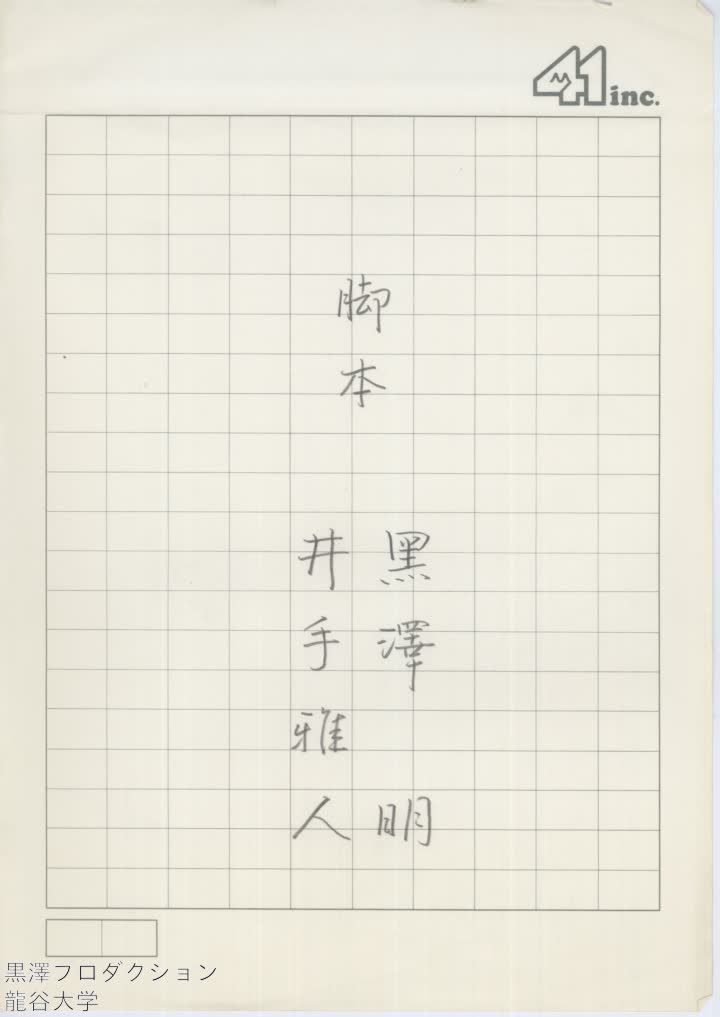 41 inc.
脚本
黒澤明
井手雅人
黒澤フロダクション
龍谷大学